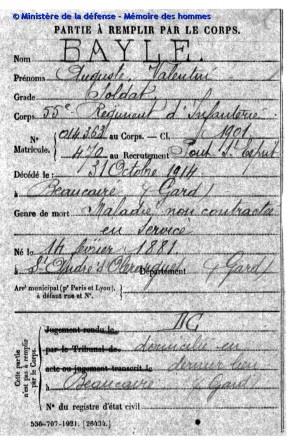 © Ministère de la défense - Mémoire des hommes
PARTIE À REMPLIR PAR LE CORPS.
Nom BAYLE
Prénoms Auguste Valentin
Grade Soldat
Corps 55e Régiment d'Infanterie
N° Matricule. 014.362 au Corps. — Cl. 1901
470 au Recrutement Pont St Esprit
Décédé le 31 Octobre 1914
à Beaucaire (Gard)
Genre de mort Maladie non contractée
en service
Né le 14 février 1881
à St André Département Gard
Arrt municipal (pr Paris et Lyon),
à défaut rue et N°.
Cette partie n'est pas à remplir par le Corps.
Jugement rendu le
par le Tribunal de domicilié en
acte ou jugement transcrit le dernier lieu
à Beaucaire (Gard)
N° du registre d'état civil
536-707-1921. [26434.]